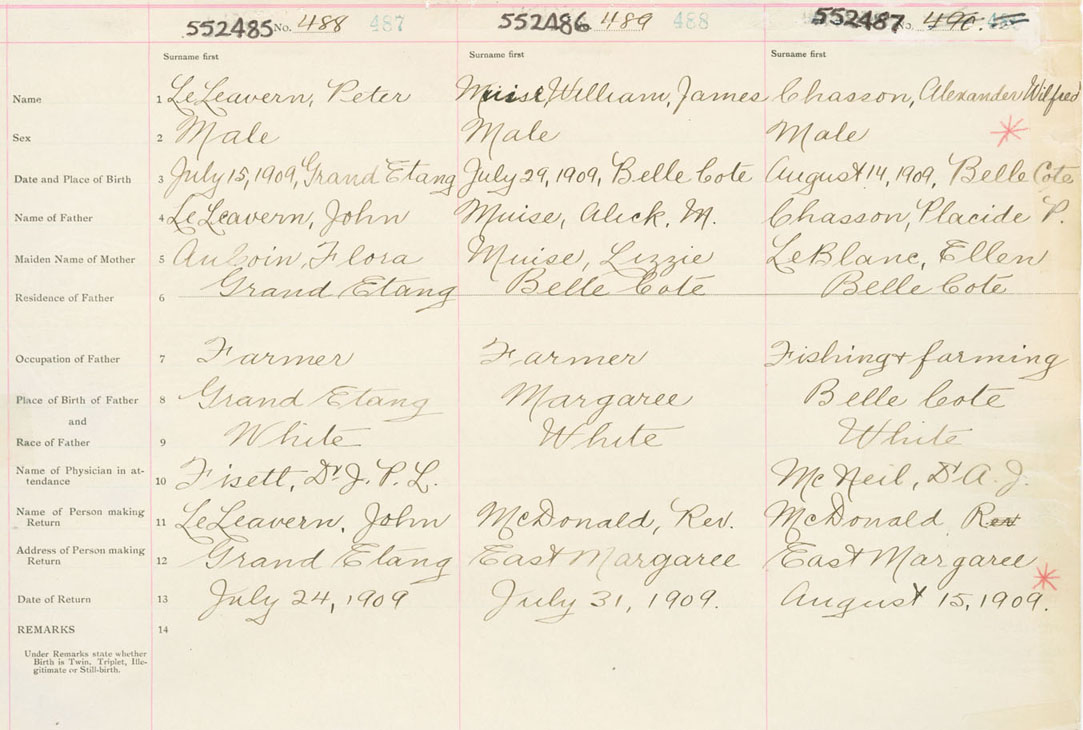 552485 No. 488 487 552486 489 488 552487 No. 490.
Surname first Surname first Surname first
Name 1 LeLeavern, Peter Muise, William, James Chasson, Alexander Wilfred
Sex 2 Male Male Male
Date and Place of Birth 3 July 15, 1909, Grand Etang July 29, 1909, Belle Cote August 14, 1909, Belle Cote
Name of Father 4 LeLeavern, John Muise, Alick, M. Chasson, Placide P.
Maiden Name of Mother 5 Aucoin, Flora Muise, Lizzie LeBlanc, Ellen
Residence of Father 6 Grand Etang Belle Cote Belle Cote
Occupation of Father 7 Farmer Farmer Fishing + farming
Place of Birth of Father 8 Grand Etang Margaree Belle Cote
and
Race of Father 9 White White White
Name of Physician in at-
tendance 10 Fisett, Dr. J. P. L. McNeil, Dr A. J.
Name of Person making
Return 11 LeLeavern, John McDonald, Rev. McDonald Rev
Address of Person making
Return 12 Grand Etang East Margaree East Margaree
Date of Return 13 July 24, 1909 July 31, 1909. August 15, 1909.
REMARKS 14
Under Remarks state whether
Birth is Twin, Triplet, Ille-
gitimate or Still-birth.